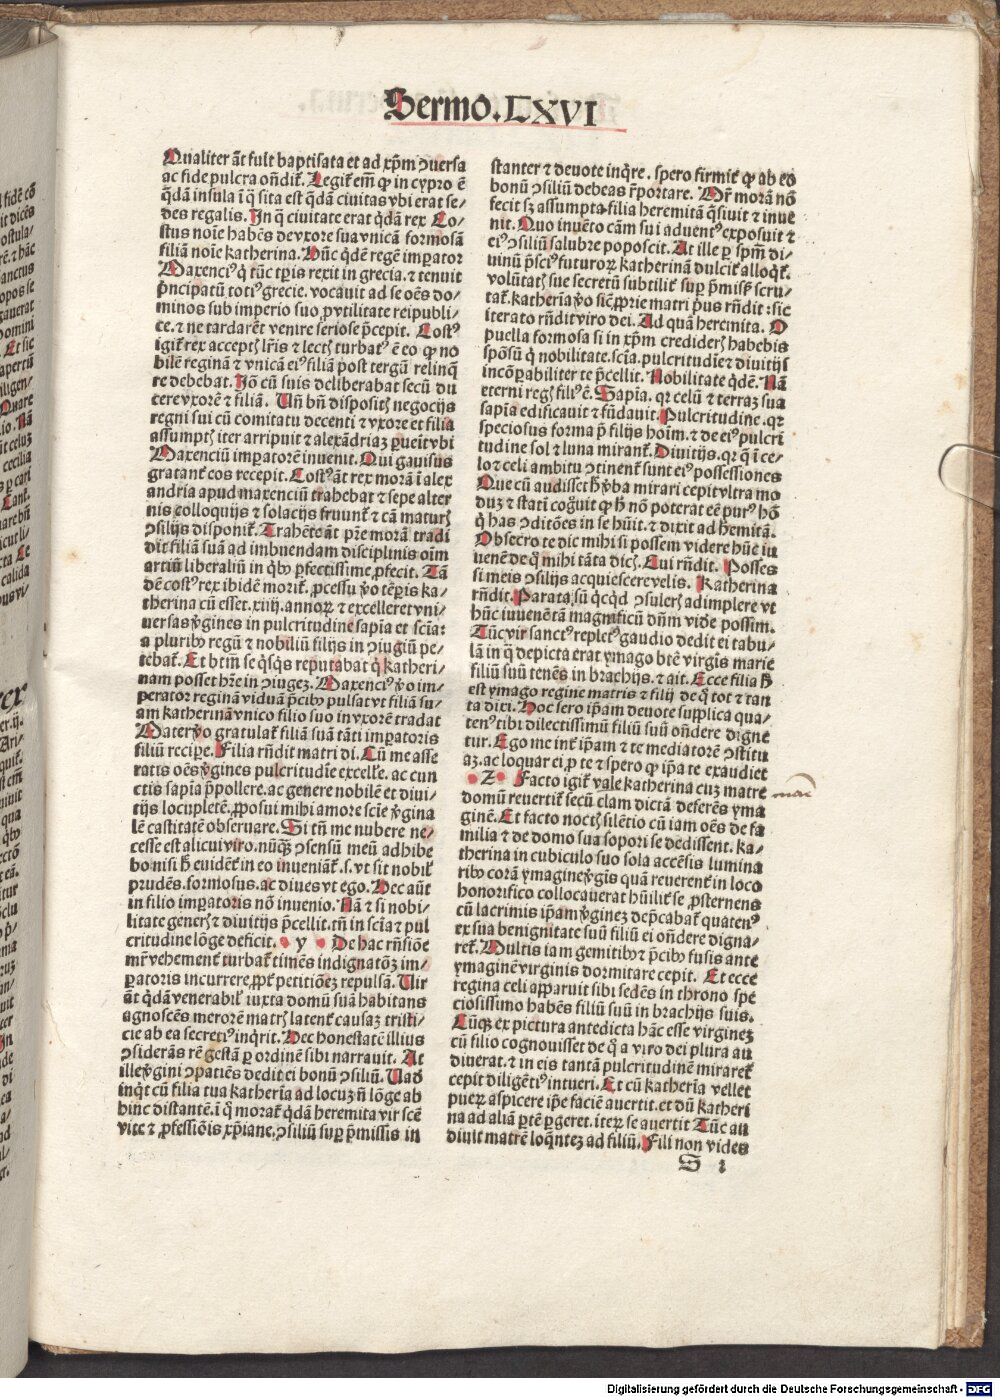 Sermo.LXVI
Qualiter āt fuit baptisata et ad xp̄m ↄuersa
ac fide pulcra on̄dit᷑. Legit᷑ em̄ ꝙ in cypro ē
q̄dā insula ī q̄ sita est q̄dā ciuitas vbi erat se⸗
des regalis. In q̄ ciuitate erat q̄dā rex Co⸗
stus noīe habēs de vxore sua vnicā formosā
filiā noīe katherina. Tūc q̄dē regē imꝑator
Maxenciꝰ q̄ tūc tꝑis rexit in grecia. ⁊ tenuit
p̄ncipatū totiꝰ grecie. vocauit ad se oēs do⸗
minos sub imperio suo ꝓ vtilitate reipubli⸗
ce. ⁊ ne tardarēt venire seriose p̄cepit. Costꝰ
igit᷑ rex acceptꝭ lr̄is ⁊ lectꝭ turbatꝰ ē eo ꝙ no
bilē reginā ⁊ vnicā eiꝰ filiā post tergū relinq̄
re debebat. Iō cū suis deliberabat secū du
cere vxorē ⁊ filiā. Un̄ bn̄ dispositꝭ negocijs
regni sui cū comitatu decenti ⁊ vxore et filia
assumptꝭ iter arripuit ⁊ alexādriaꝫ ꝑueīt vbi
Maxenciū imꝑatorē inuenit. Qui gauisus
gratant᷑ eos recepit. Costꝰ āt rex morā ī alex
andria apud maxenciū trahebat ⁊ sepe alter
nis colloquijs ⁊ solacijs fruunt᷑ ⁊ cā maturꝭ
ↄsilijs disponit᷑. Trahēte āt pr̄e morā tradi
dit filiā suā ad imbuendam disciplinis oīm
artiū liberaliū in q̄bꝰ ꝑfectissime ꝓfecit. Tā
dē costꝰ rex ibidē morit᷑. ꝓcessu v̄o tēꝑis ka⸗
therina cū esset .xiiij. annoꝝ ⁊ excelleret vni⸗
uersas v̄gines in pulcritudine sapīa et scīa:
a pluribꝰ regū ⁊ nobiliū filijs in ↄiugiū pe⸗
tebat᷑. Et btm̄ se q̄sq̄s reputabat q̄ katheri⸗
nam posset hr̄e in ↄiugeꝫ. Maxenciꝰ v̄o im⸗
perator reginā viduā p̄cibꝰ pulsat vt filiā su⸗
am katherinā vnico filio suo in vxorē tradat
Mater v̄o gratulat᷑ filiā suā tāti imꝑatoris
filiū reciꝑe. Filia rn̄dit matri di. Cū me asse
ratis oēs v̄gines pulcritudīe excell᷑e. ac cun
ctis sapīa p̄pollere. ac genere nobilē et diui⸗
tijs locupletē. ꝓposui mihi amore scīe v̄gina
lē castitatē obseruare. Si tn̄ me nubere ne⸗
cesse est alicui viro. nūqꝫ ↄsensū meū adhibe
bo nisi h̄ euidēt᷑ in eo inueniāt᷑. s. vt sit nobil᷑
prudēs. formosus. ac diues vt ego. Hec aūt
in filio imꝑatoris nō inuenio. Nā ⁊ si nobi⸗
litate generꝭ ⁊ diuitijs p̄cellit. tn̄ in scīa ⁊ pul
critudine lōge deficit. y De hac rn̄siōe
mr̄ vehement᷑ turbat᷑ timēs indignatōꝫ im⸗
ꝑatoris incurrere ꝓpt᷑ petitiōeꝫ repulsā. Uir
āt q̄dā venerabil᷑ iuxta domū suā habitans
agnoscēs merorē matrꝭ latent᷑ causaꝫ tristi⸗
cie ab ea secretiꝰ inq̄rit. Hec honestatē illius
ↄsiderās rē gestā ꝑ ordinē sibi narrauit. At
ille v̄gini ↄpatiēs dedit ei bonū ↄsiliū. Uad
inq̄t cū filia tua katherīa ad locuꝫ n̄ lōge ab
hinc distantē. ī q̄ morat᷑ q̄dā heremita vir scē
vite ⁊ ꝓfessiōis xp̄iane. ↄsiliū suꝑ p̄missis in
stanter ⁊ deuote inq̄re. spero firmit᷑ ꝙ ab eo
bonū ↄsiliū debeas r̄portare. Mr̄ morā nō
fecit sꝫ assumpta filia heremitā q̄siuit ⁊ inue
nit. Quo inuēto cām sui aduentꝰ exposuit ⁊
eiꝰ ↄsiliū salubre poposcit. At ille ꝑ spm̄ di⸗
uinū p̄sciꝰ futuroꝝ katherinā dulcit᷑ alloq̄t᷑.
volūtatꝭ sue secretū subtilit᷑ suꝑ p̄missꝭ scru⸗
tat᷑. katherīa v̄o sic ꝓprie matri p̄us rn̄dit : sic
iterato rn̄dit viro dei. Ad quā heremita. O
puella formosa si in xp̄m credider̄ habebis
spōsū q̄ nobilitate. scīa. pulcritudīe ⁊ diuitijs
incōꝑabiliter te p̄cellit. Nobilitate q̄dē. Nā
eterni regꝭ filiꝰ ē. Sapīa. qꝛ celū ⁊ terraꝫ sua
sapīa edificauit ⁊ fūdauit. Pulcritudine. qꝛ
speciosus forma p̄ filijs hoīm. ⁊ de eiꝰ pulcri
tudine sol ⁊ luna mirant᷑. Diuitijs. qꝛ q̄ ī ce⸗
lo ⁊ celi ambitu ↄtinent᷑ sunt eiꝰ possessiones
Que cū audisset h̄ v̄ba mirari cepit vltra mo
duꝫ ⁊ statī cog̊uit ꝙ h̄ nō poterat eē purꝰ hō
q̄ has ↄditōes in se hūit. ⁊ dixit ad h̄emitā.
Obsecro te dic mihi si possem videre hūc iu
uenē de q̄ mihi tāta dicꝭ. Cui rn̄dit. Posses
si meis ↄsilijs acquiescere velis. Katherina
rn̄dit. Parata sū q̄cq̄d ↄsulerꝭ adimplere vt
hūc iuuenē tā magnificū dn̄m vide possim.
Tūc vir sanctꝰ repletꝰ gaudio dedit ei tabu⸗
lā in q̄ depicta erat ymago btē virgīs marie
filiū suū tenēs in brachijs. ⁊ ait. Ecce filia h̄
est ymago regine matris ⁊ filij de q̄ tot ⁊ tan
ta dixi. Hoc sero ip̄am deuote supplica qua⸗
tenꝰ tibi dilectissimū filiū suū on̄dere dignē
tur. Ego me int᷑ ip̄am ⁊ te mediatorē ↄstitu
aꝫ. ac loquar ei ꝓ te ⁊ spero ꝙ ip̄a te exaudiet
Z Facto igit᷑ vale katherina cuꝫ matre
domū reuertit᷑ secū clam dictā deferēs yma
ginē. Et facto noctꝭ silētio cū iam oēs de fa
milia ⁊ de domo sua sopori se dedissent. ka⸗
therina in cubiculo suo sola accēsis lumina
ribꝰ corā ymagine v̄gīs quā reuerent᷑ in loco
honorifico collocauerat hūilit᷑ se ꝓsternens
cū lacrimis ip̄am v̄gineꝫ dep̄cabat᷑ quatenꝰ
ex sua benignitate suū filiū ei on̄dere digna⸗
ret᷑. Multis iam gemitibꝰ ⁊ p̄cibꝰ fusis ante
ymaginē virginis dormitare cepit. Et ecce
regina celi apparuit sibi sedēs in throno spe
ciosissimo habēs filiū suū in brachijs suis.
Cūqꝫ ex pictura antedicta hāc esse virgineꝫ
cū filio cognouisset de q̄ a viro dei plura au
diuerat. ⁊ in eis tantā pulcritudinē miraret᷑
cepit diligētiꝰ intueri. Et cū katherīa vellet
pueꝝ aspicere ip̄e faciē auertit. et dū katheri
na ad aliā ꝑtē ꝑgeret. iteꝝ se auertit Tūc au
diuit matrē loq̄nteꝫ ad filiū. Fili non vides
S 1
Digitalisierung gefördert durch die Deutsche Forschungsgemeinschaft - DFG